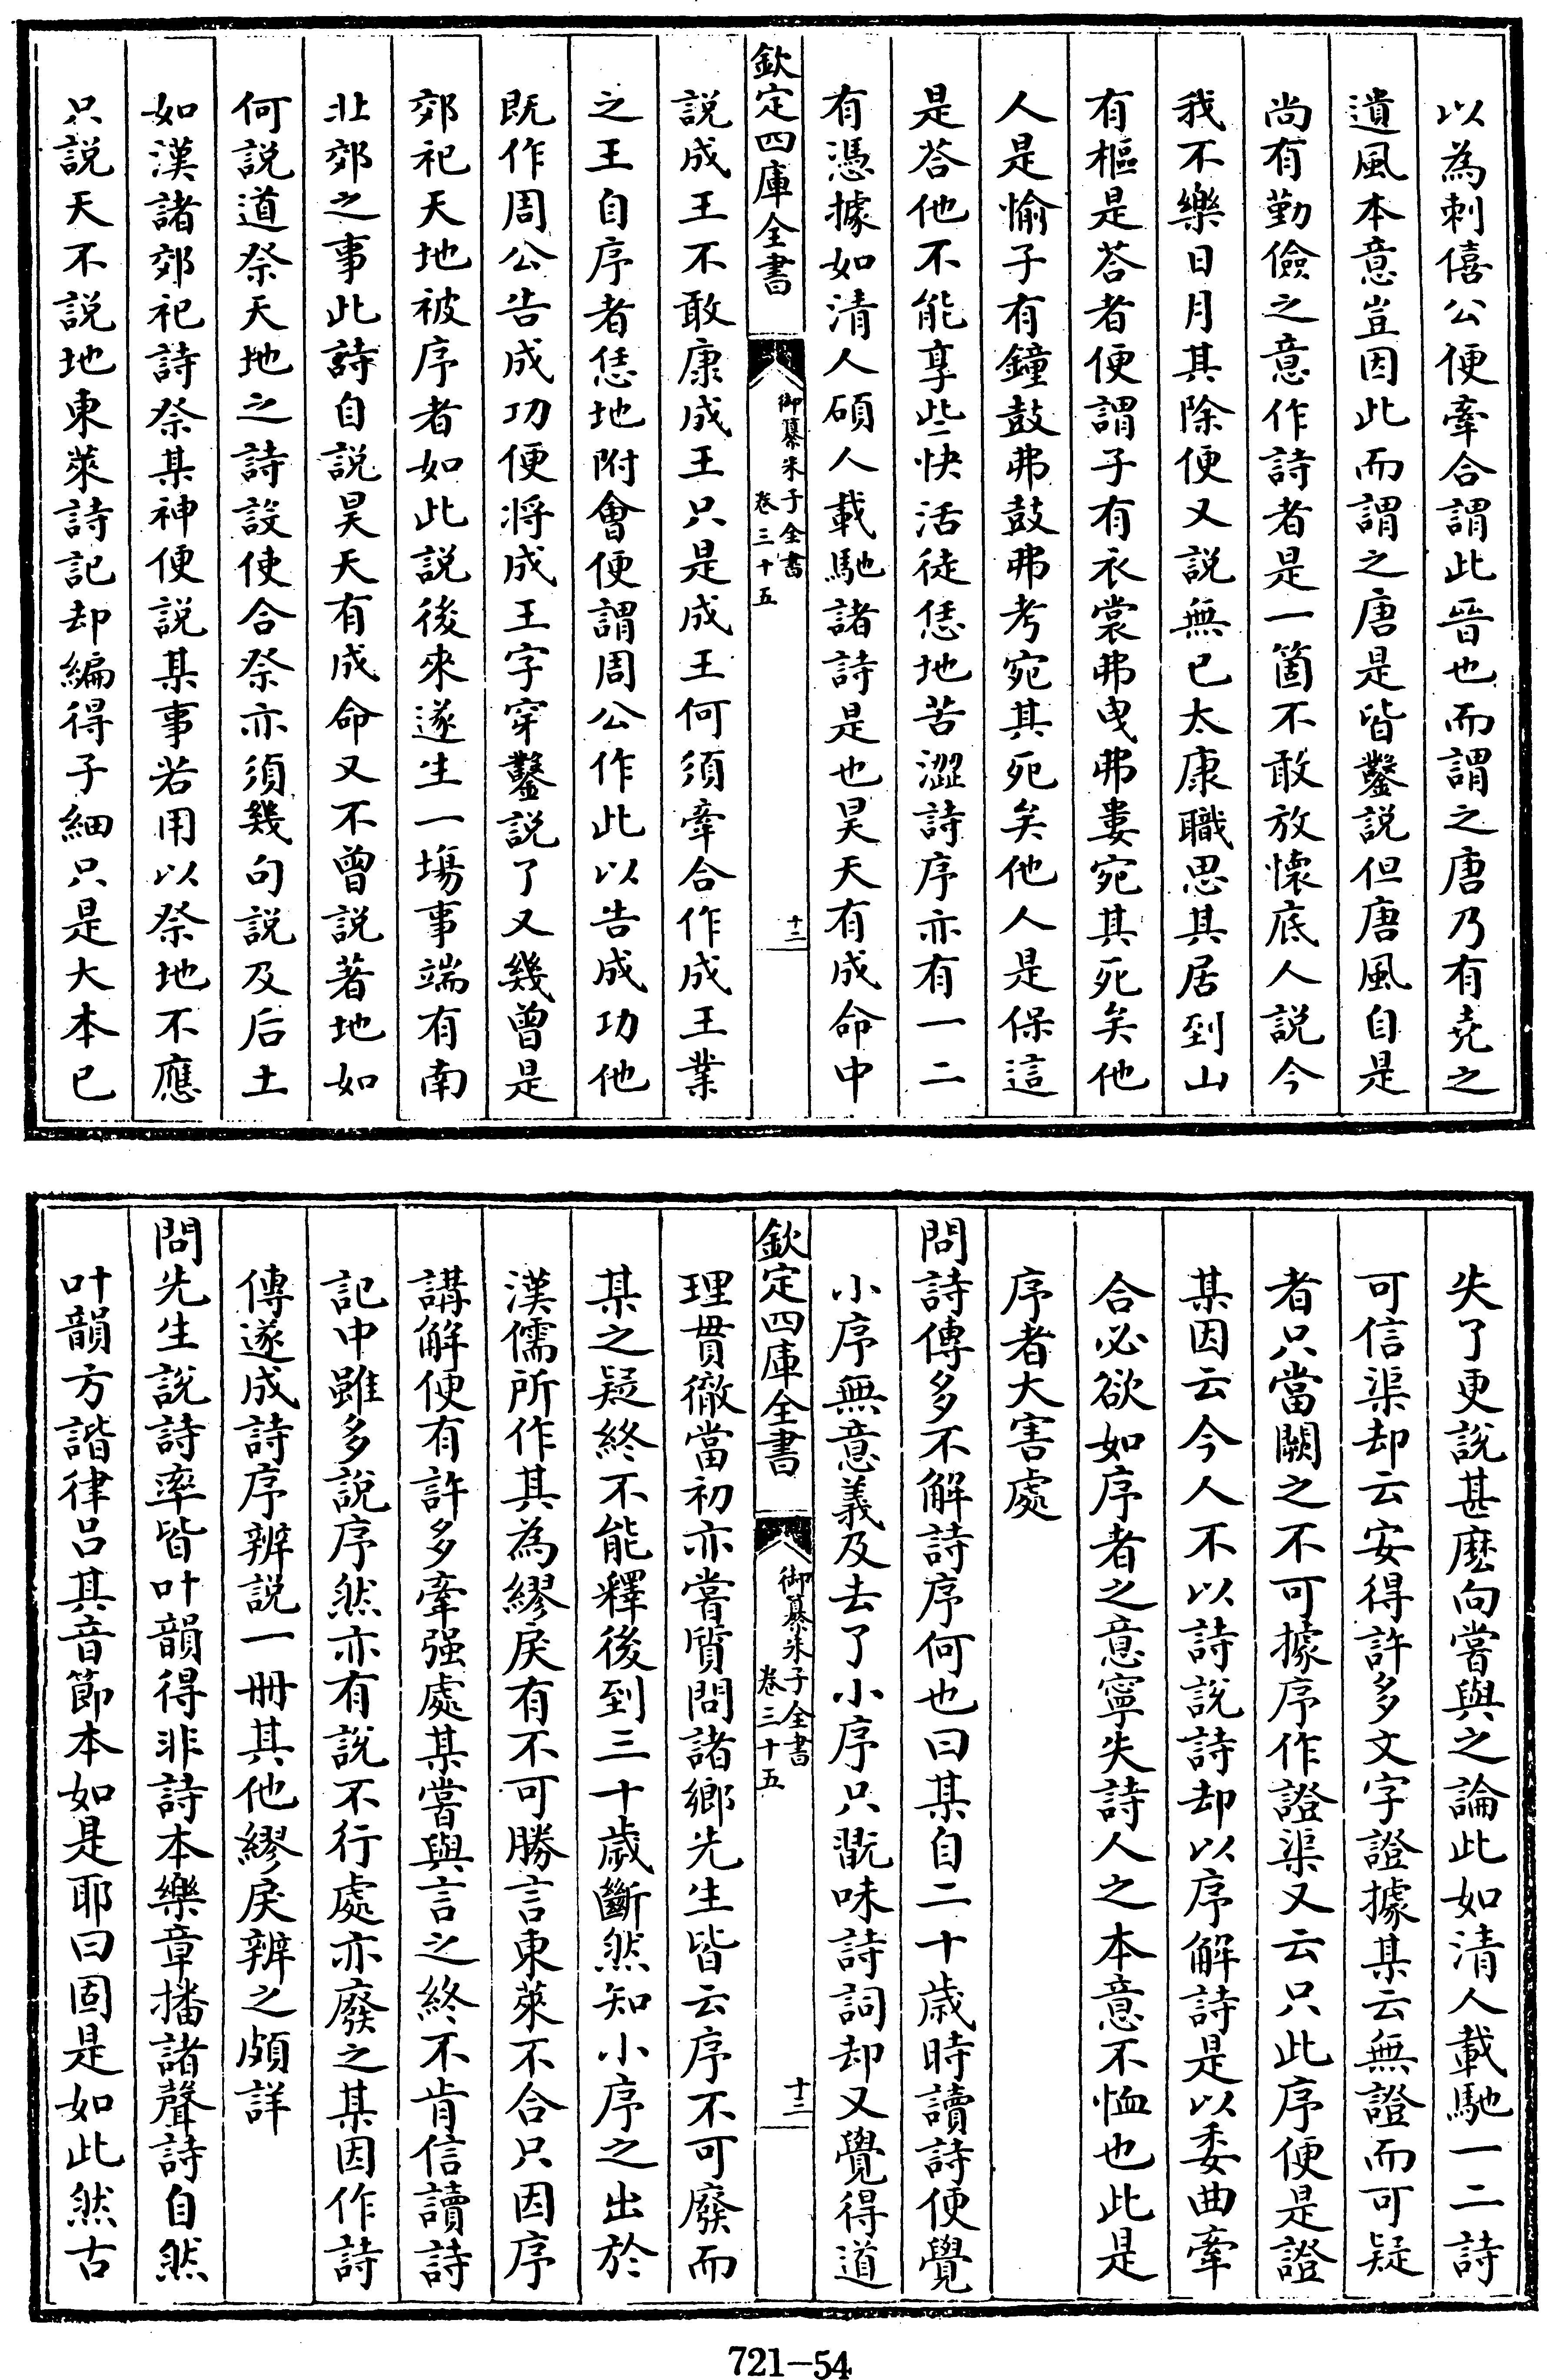 以為刺僖公便牽合謂此晉也而謂之唐乃有堯之
遺風本意豈因此而謂之唐是皆鑿説但唐風自是
尚有勤儉之意作詩者是一箇不敢放懷底人説今
我不樂日月其除便又説無已太康職思其居到山
有樞是荅者便謂子有衣裳弗曳弗婁宛其死矣他
人是愉子有鐘鼓弗鼓弗考宛其死矣他人是保這
是荅他不能享些快活徒恁地苦澀詩序亦有一二
有憑據如清人碩人載馳諸詩是也昊天有成命中
欽定四庫全書
御纂朱子全書
卷三十五
十二
説成王不敢康成王只是成王何須牽合作成王業
之王自序者恁地附會便謂周公作此以告成功他
既作周公告成功便將成王字穿鑿説了又幾曾是
郊祀天地被序者如此説後來遂生一塲事端有南
北郊之事此詩自説昊天有成命又不曾説著地如
何説道祭天地之詩設使合祭亦須幾句説及后土
如漢諸郊祀詩祭某神便説某事若用以祭地不應
只説天不説地東萊詩記却編得子細只是大本已
失了更説甚麽向嘗與之論此如清人載馳一二詩
可信渠却云安得許多文字證據某云無證而可疑
者只當闕之不可據序作證渠又云只此序便是證
某因云今人不以詩説詩却以序解詩是以委曲牽
合必欲如序者之意寧失詩人之本意不恤也此是
序者大害處
問詩傳多不解詩序何也曰某自二十歲時讀詩便覺
小序無意義及去了小序只翫味詩詞却又覺得道
欽定四庫全書
御纂朱子全書
卷三十五
十三
理貫徹當初亦嘗質問諸鄉先生皆云序不可廢而
某之疑終不能釋後到三十歲斷然知小序之出於
漢儒所作其為繆戾有不可勝言東萊不合只因序
講解便有許多牽强處某嘗與言之終不肯信讀詩
記中雖多説序然亦有説不行處亦廢之某因作詩
傳遂成詩序辨説一冊其他繆戾辨之頗詳
問先生説詩率皆叶韻得非詩本樂章播諸聲詩自然
叶韻方諧律吕其音節本如是耶曰固是如此然古
721-54